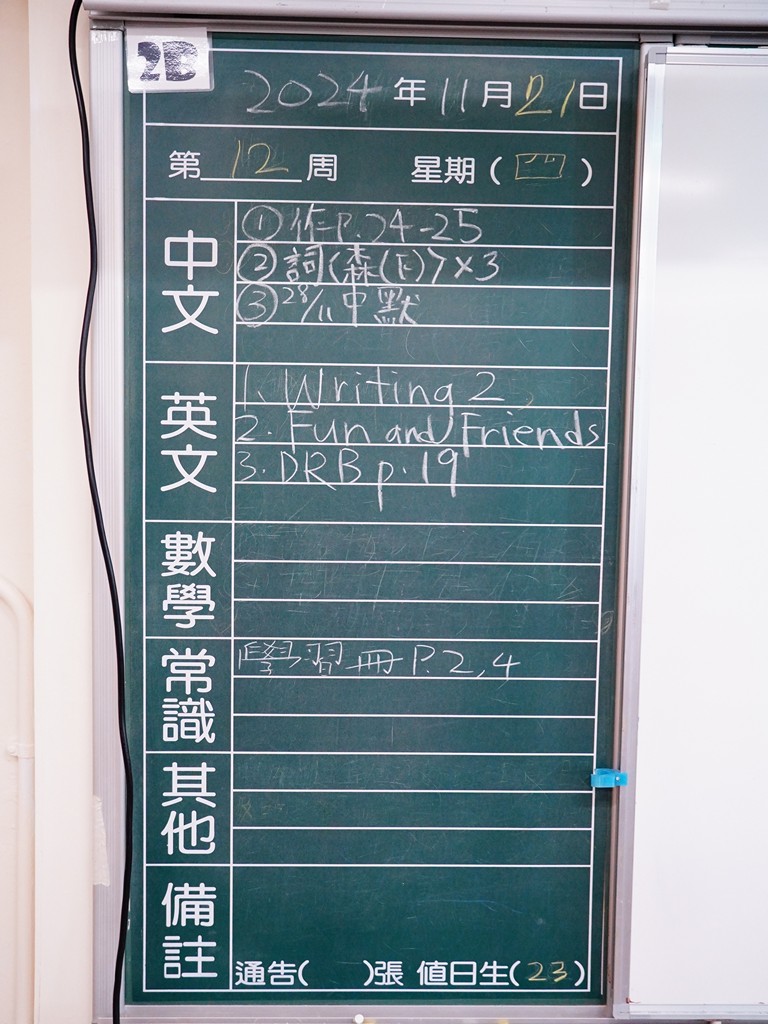 2D
2024年11月21日
第12周 星期(四)
中文
①作P.24-25
②詞(森(下))×3
③28/11中默
英文
1. Writing 2
2. Fun and Friends
3. DRB p.19
數學
常識
學習冊P.2,4
其他
備註
通告( )張 值日生(23)